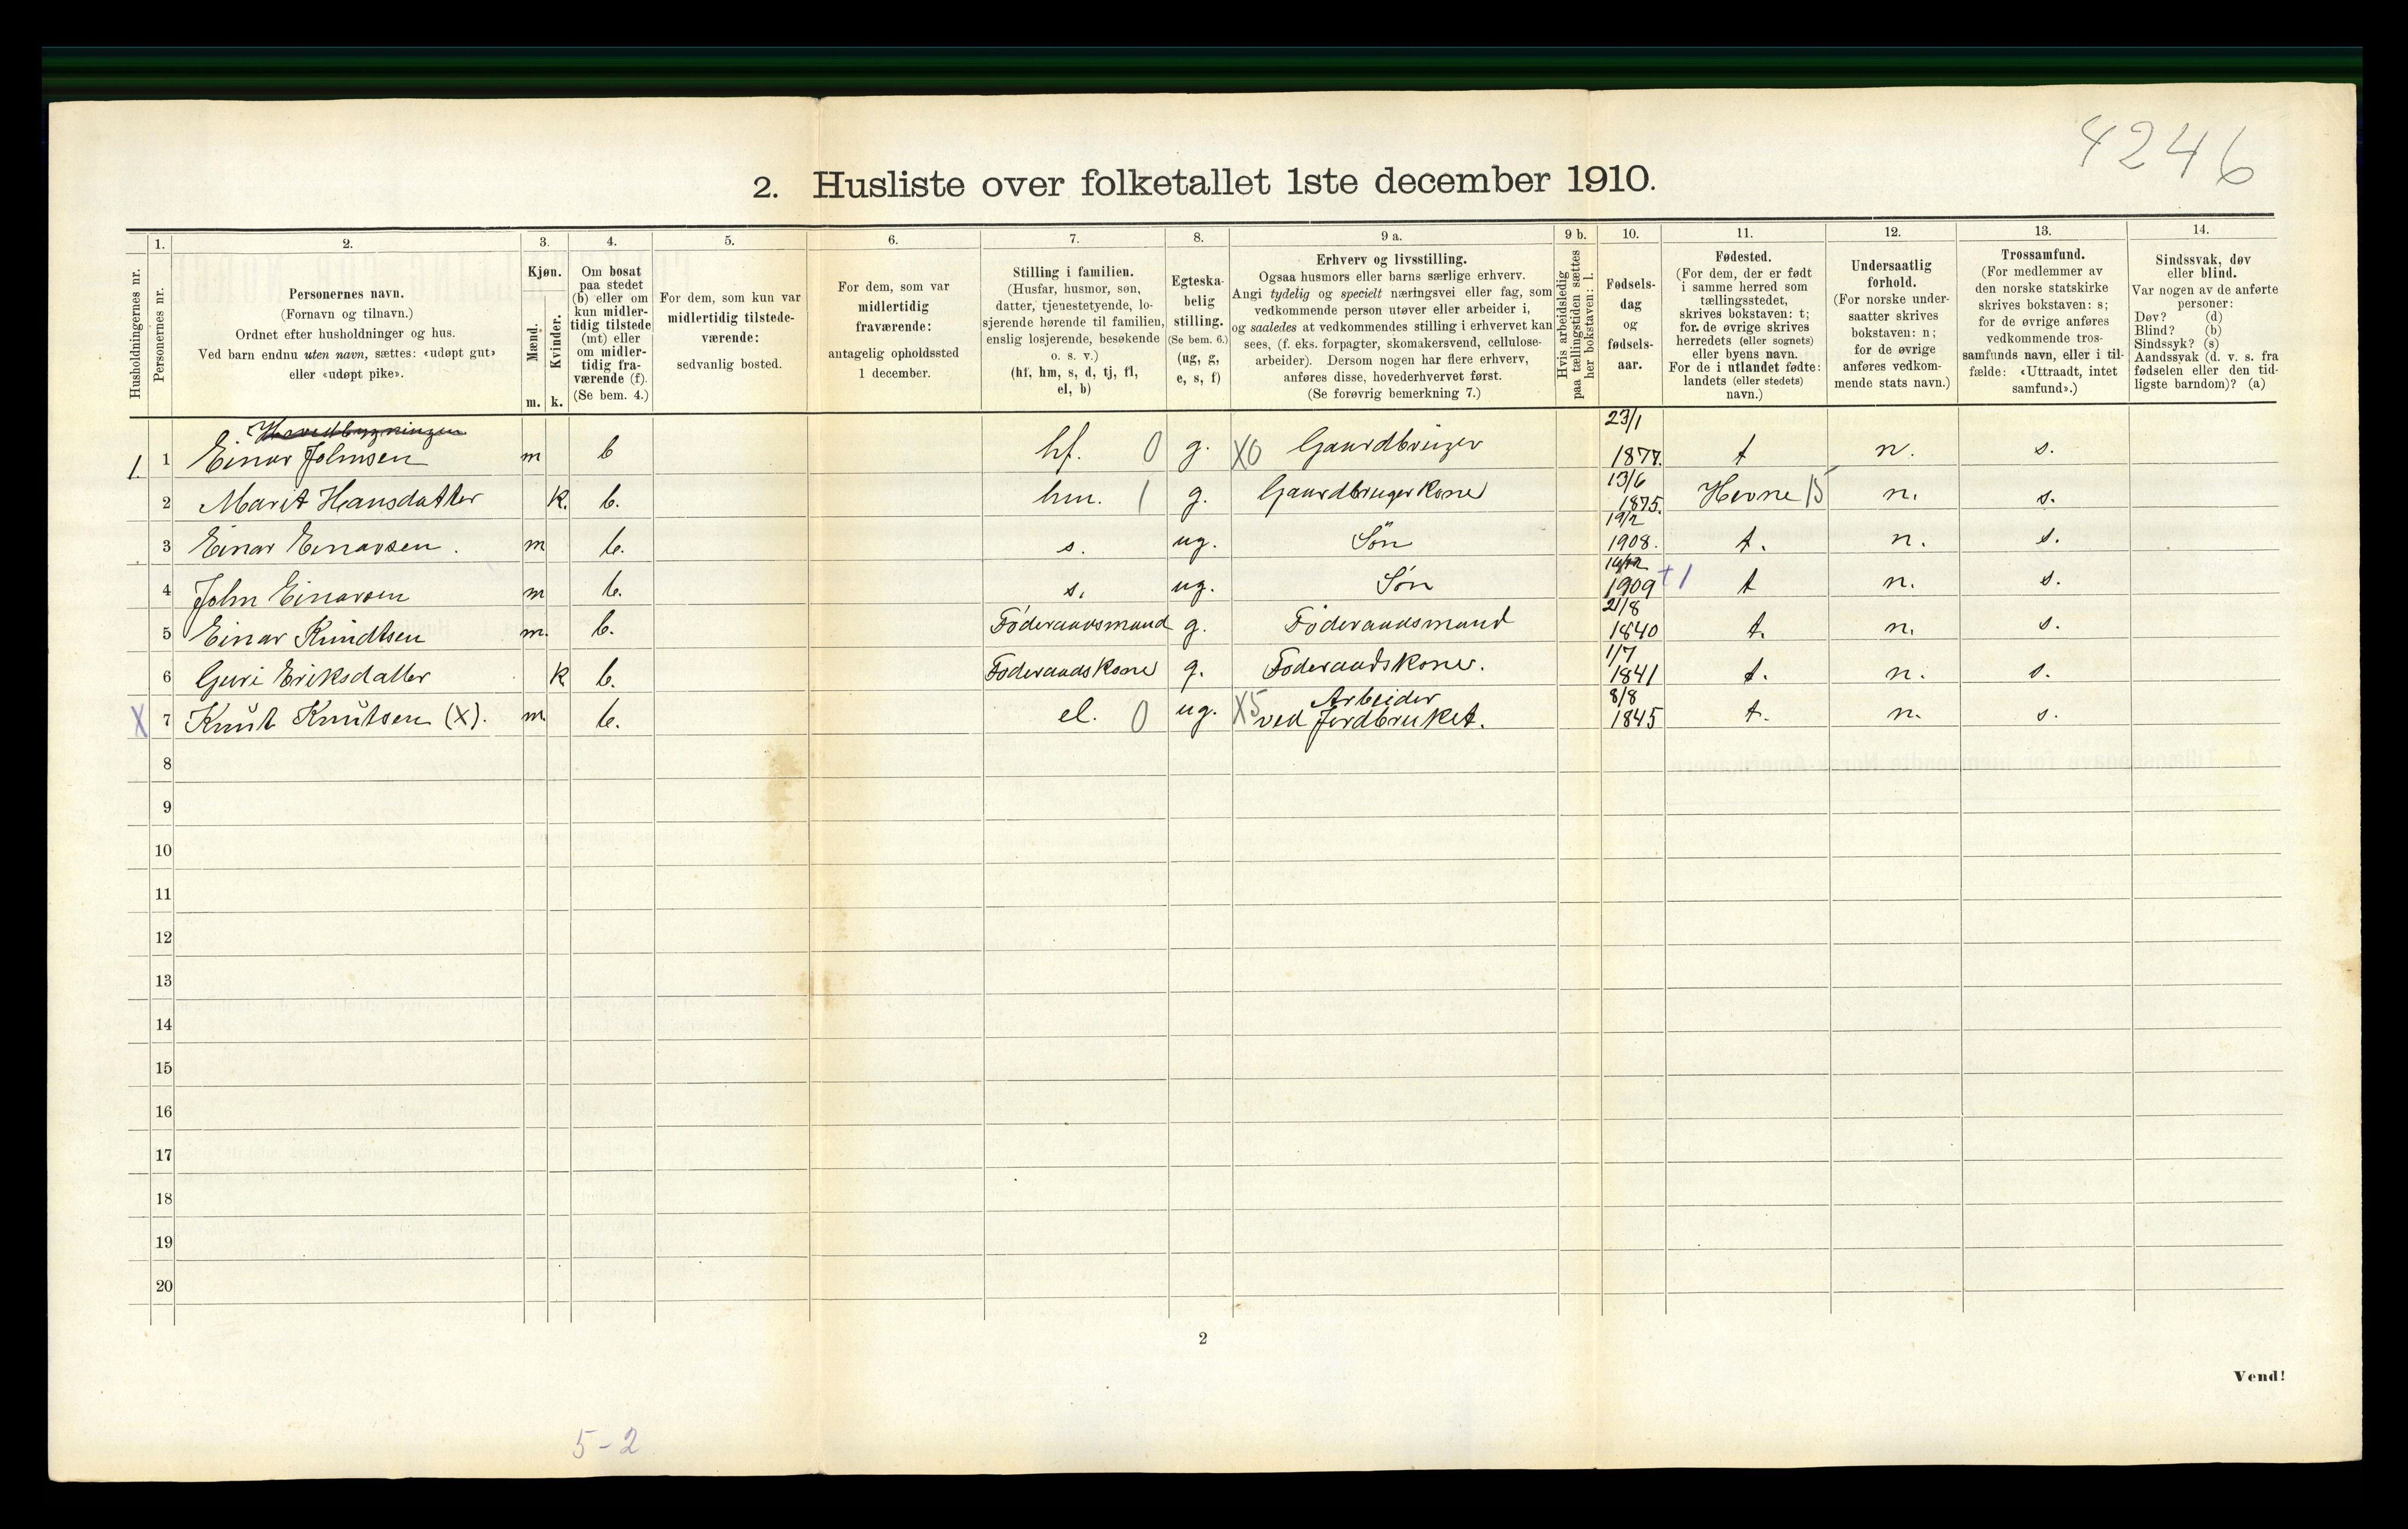 4246
2. Husliste over folketallet 1ste december 1910.
Husholdningernes nr.
1.
Personernes nr.
2.
Personernes navn.
(Fornavn og tilnavn.)
Ordnet efter husholdninger og hus.
Ved barn endnu uten navn, sættes: «udøpt gut»
eller «udøpt pike».
3.
Kjøn.
Mænd.
Kvinder.
m. k.
4.
Om bosat
paa stedet
(b) eller om
kun midler-
tidig tilstede
(mt) eller
om midler-
tidig fra-
værende (f).
(Se bem. 4.)
5.
For dem, som kun var
midlertidig tilstede-
værende:
sedvanlig bosted.
6.
For dem, som var
midlertidig
fraværende:
antagelig opholdssted
1 december.
7.
Stilling i familien.
(Husfar, husmor, søn,
datter, tjenestetyende, lo-
sjerende hørende til familien,
enslig losjerende, besøkende
o. s. v.)
(hf, hm, s, d, tj, fl,
el, b)
8.
Egteska-
belig
stilling.
(Se bem. 6.)
(ug, g,
e, s, f)
9 a.
Erhverv og livsstilling.
Ogsaa husmors eller barns særlige erhverv.
Angi tydelig og specielt næringsvei eller fag, som
vedkommende person utøver eller arbeider i,
og saaledes at vedkommendes stilling i erhvervet kan
sees, (f. eks. forpagter, skomakersvend, cellulose-
arbeider). Dersom nogen har flere erhverv,
anføres disse, hovederhvervet først.
(Se forøvrig bemerkning 7.)
9 b.
Hvis arbeidsledig
paa tællingstiden sættes
her bokstaven: l.
10.
Fødsels-
dag
og
fødsels-
aar.
11.
Fødested.
(For dem, der er født
i samme herred som
tællingsstedet,
skrives bokstaven: t;
for de øvrige skrives
herredets (eller sognets)
eller byens navn.
For de i utlandet fødte:
landets (eller stedets)
navn.)
12.
Undersaatlig
forhold.
(For norske under-
saatter skrives
bokstaven: n;
for de øvrige
anføres vedkom-
mende stats navn.)
13.
Trossamfund.
(For medlemmer av
den norske statskirke
skrives bokstaven: s;
for de øvrige anføres
vedkommende tros-
samfunds navn, eller i til-
fælde: «Uttraadt, intet
samfund».)
14.
Sindssvak, døv
eller blind.
Var nogen av de anførte
personer:
Døv? (d)
Blind? (b)
Sindssyk? (s)
Aandssvak (d. v. s. fra
fødselen eller den tid-
ligste barndom)? (a)
Hovedbygningen
1. 1 Einar Johnsen m b hf. 0 g. X0 Gaardbruger 23/1 1877. t n. s.
2 Marit Hansdatter k. b. hm. 1 g. Gaardbrugerkone 13/6 1875. Hevne 15 n. s.
3 Einar Einarsen. m b. s. ug. Søn 19/2 1908. t. n. s.
4 John Einarsen m b. s. ug. Søn 1909 +1 t n. s.
5 Einar Knudtsen m. b. Føderaadsmand g. Føderaadsmand 21/8 1840 t. n. s.
6 Guri Eriksdatter k b. Føderaadskone g. Føderaadskone. 1/7 1841 t. n. s.
X 7 Knut Knutsen (X). m. b. el. 0 ug. X5 Arbeider ved Jordbruket. 8/8 1845 t. n. s.
8
9
10
11
12
13
14
15
16
17
18
19
20
2
Vend!
5-2